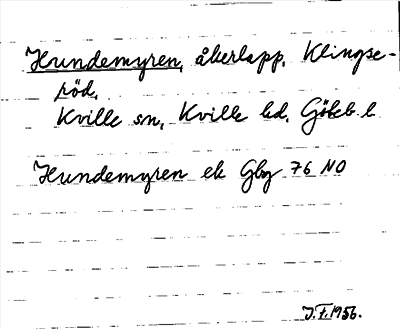 Hundemyren, åkerlapp, Klingse-
röd,
Kville sn, Kville hd, Göteb. l.
Hundemyren ek Gbg 76 NO
J.F. 1956.